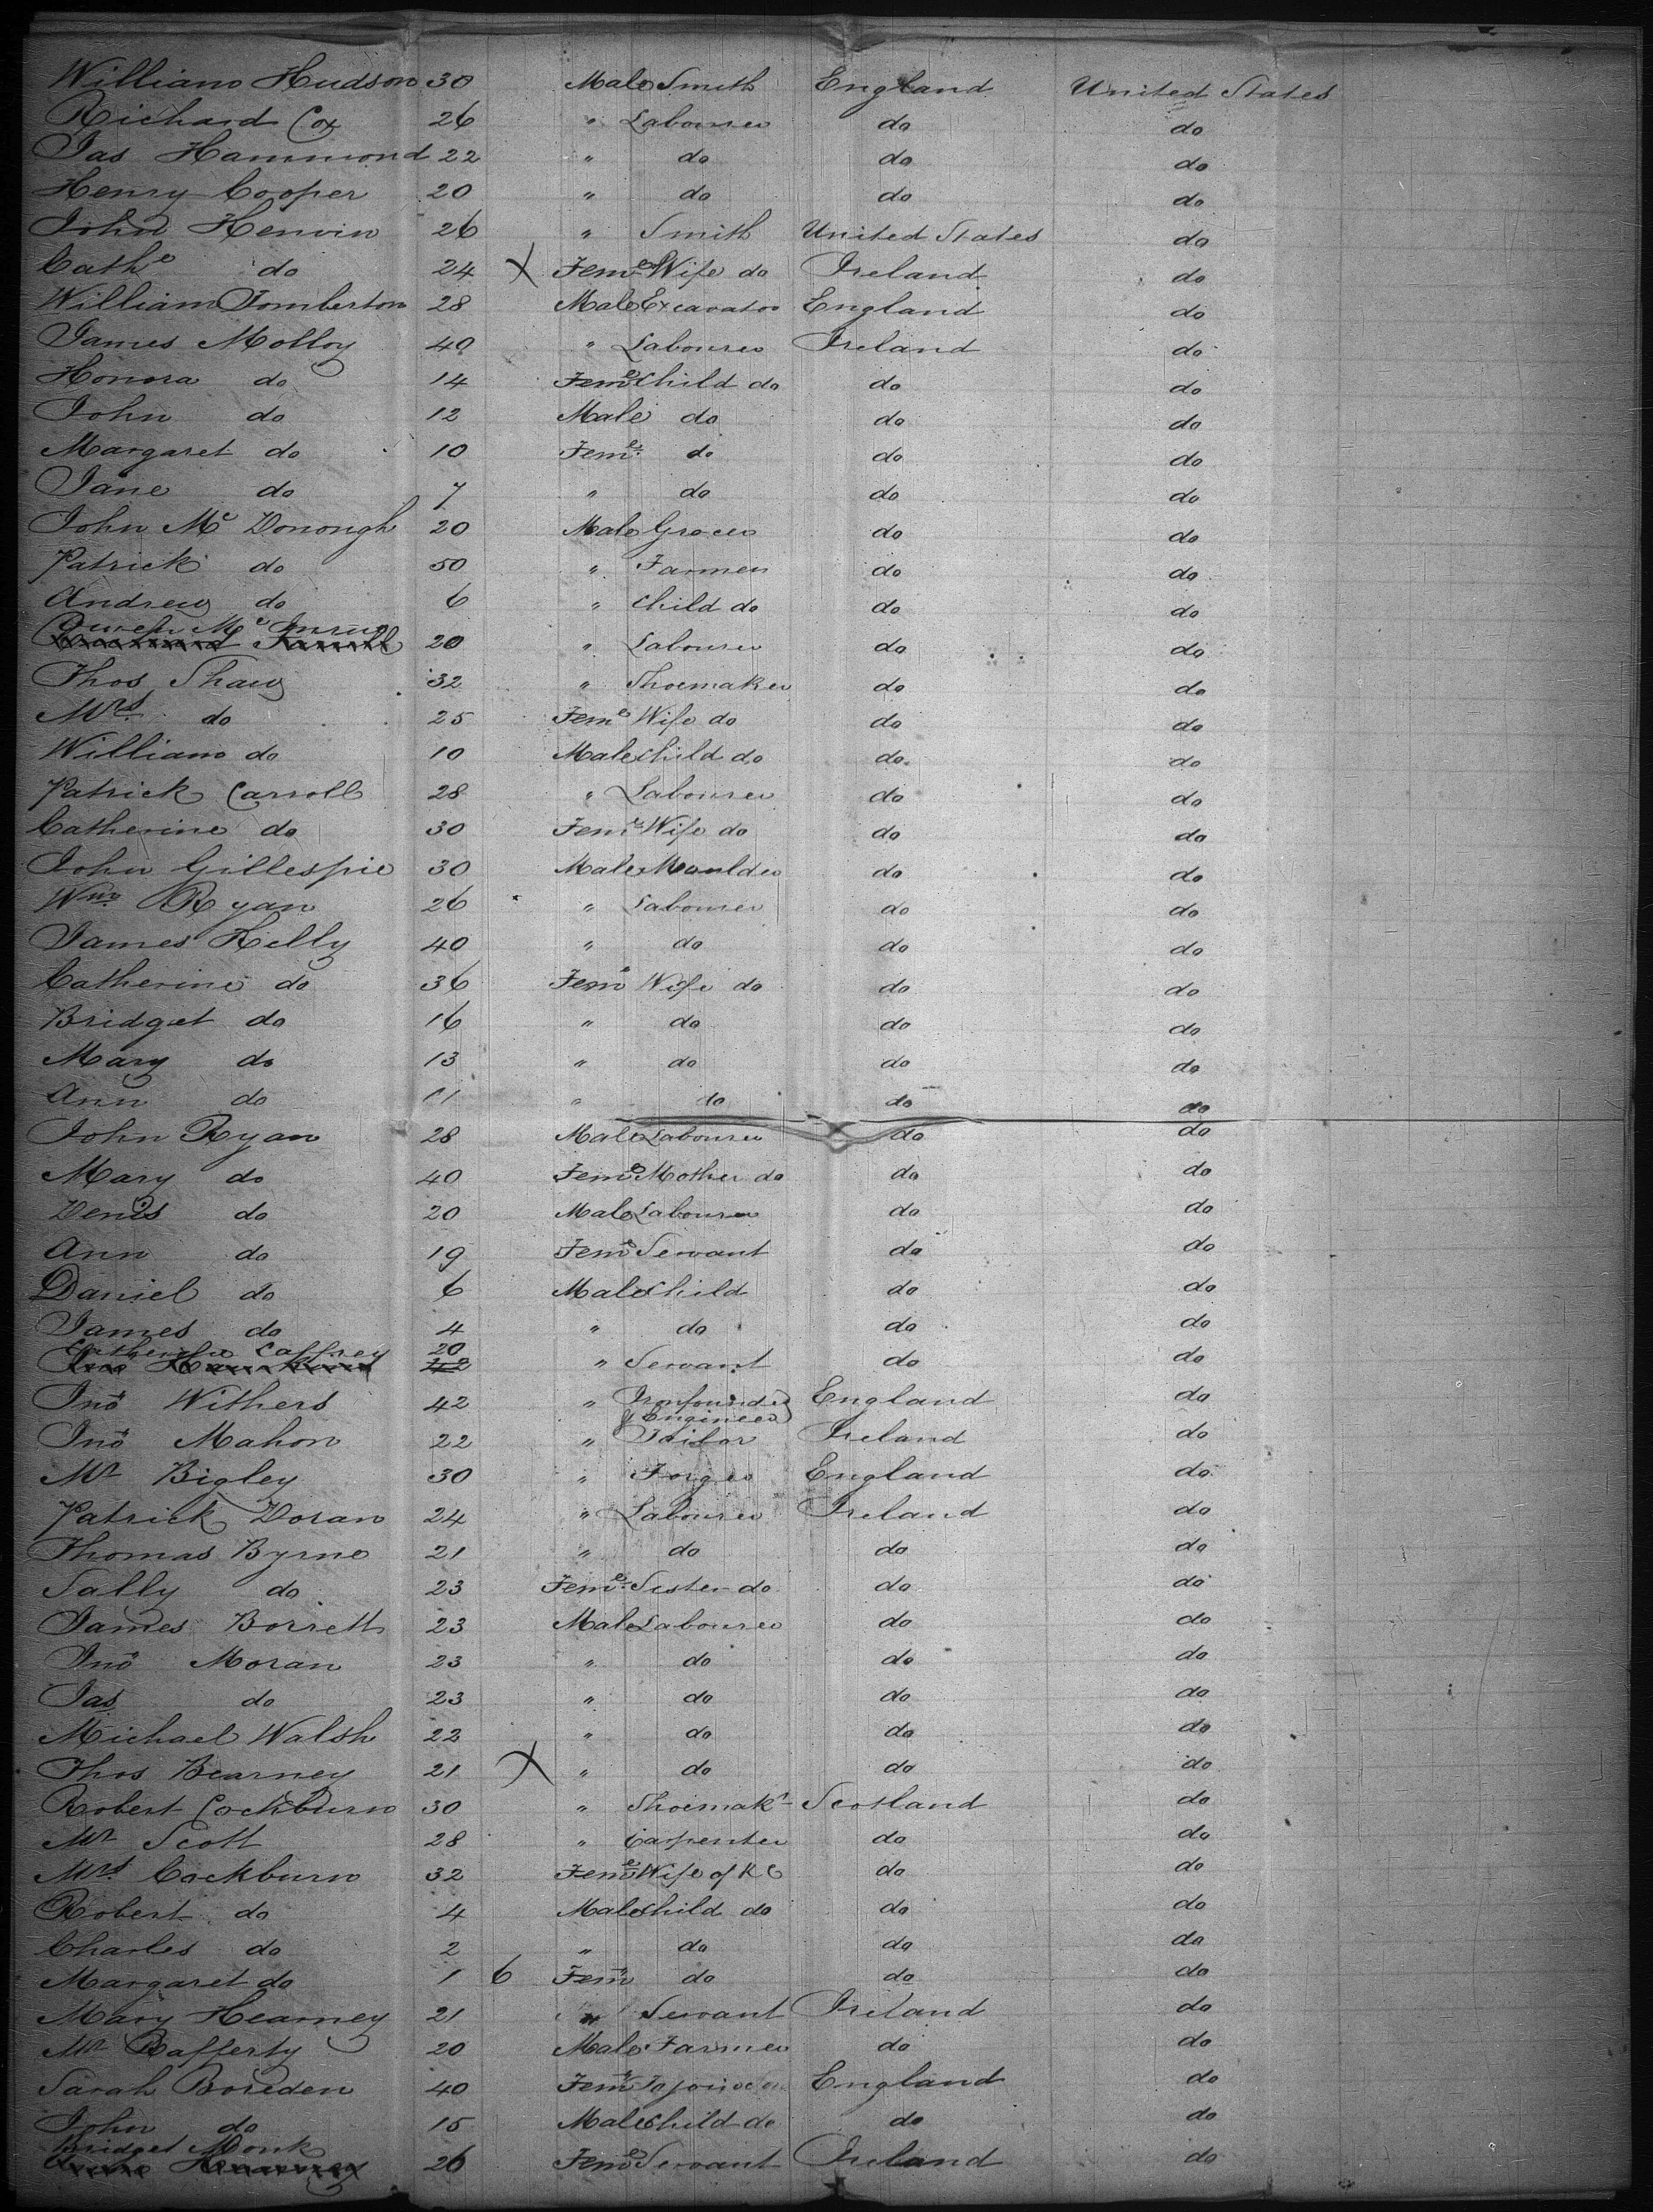 William Hudson 30 Male Smith England United States
Richard Cox 26 " Labourer do do
Jas Hammond 22 " do do do
Henry Cooper 20 " do do do
John Henvin 26 " Smith United States do
Cathe do 24 X Feme Wife do Ireland do
William Tomberton 28 Male Excavator England do
James Molloy 40 " Labourer Ireland do
Honora do 14 Feme Child do do do
John do 12 Male do do do
Margaret do 10 Feme do do do
Jane do 7 " do do do
John Mc Donough 20 Male Grocer do do
Patrick do 50 " Farmer do do
Andrew do 6 " Child do do do
Owen Mc
20 " Labourer do do
Thos Shaw 32 " Shoemaker do do
Mrs do 25 Feme Wife do do do
William do 10 Male Child do do do
Patrick Carroll 28 " Labourer do do
Catherine do 30 Feme Wife do do do
John Gillespie 30 Male Moulder do do
Wm Ryan 26 " Labourer do do
James Kelly 40 " do do do
Catherine do 36 Feme Wife do do do
Bridget do 16 " do do do
Mary do 13 " do do do
Ann do 11 " do do do
John Ryan 28 Male Labourer do do
Mary do 40 Feme Mother do do do
Denis do 20 Male Labourer do do
Ann do 19 Feme Servant do do
Daniel do 6 Male Child do do
James do 4 " do do do
Catherine Caffrey 20
" Servant do do
Jno Withers 42 " Ironfounder England do
& Engineer
Jno Mahon 22 " Tailor Ireland do
Mr Bigley 30 " Forger England do
Patrick Doran 24 " Labourer Ireland do
Thomas Byrne 21 " do do do
Sally do 23 Feme Sister do do do
James Borrett 23 Male Labourer do do
Jno Moran 23 " do do do
Jas do 23 " do do do
Michael Walsh 22 " do do do
Thos Bearney 21 X " do do do
Robert Cockburn 30 " Shoemakr Scotland do
Mr Scott 28 " Carpenter do do
Mrs Cockburn 32 Feme Wife of R C do do
Robert do 4 Male Child do do do
Charles do 2 " do do do
Margaret do 1 6 Feme do do do
Mary Hearney 21 " Servant Ireland do
Mr Rafferty 20 Male Farmer do do
Sarah Boreden 40 Feme England do
John do 15 Male Child do do do
Bridget Monk
26 Feme Servant Ireland do